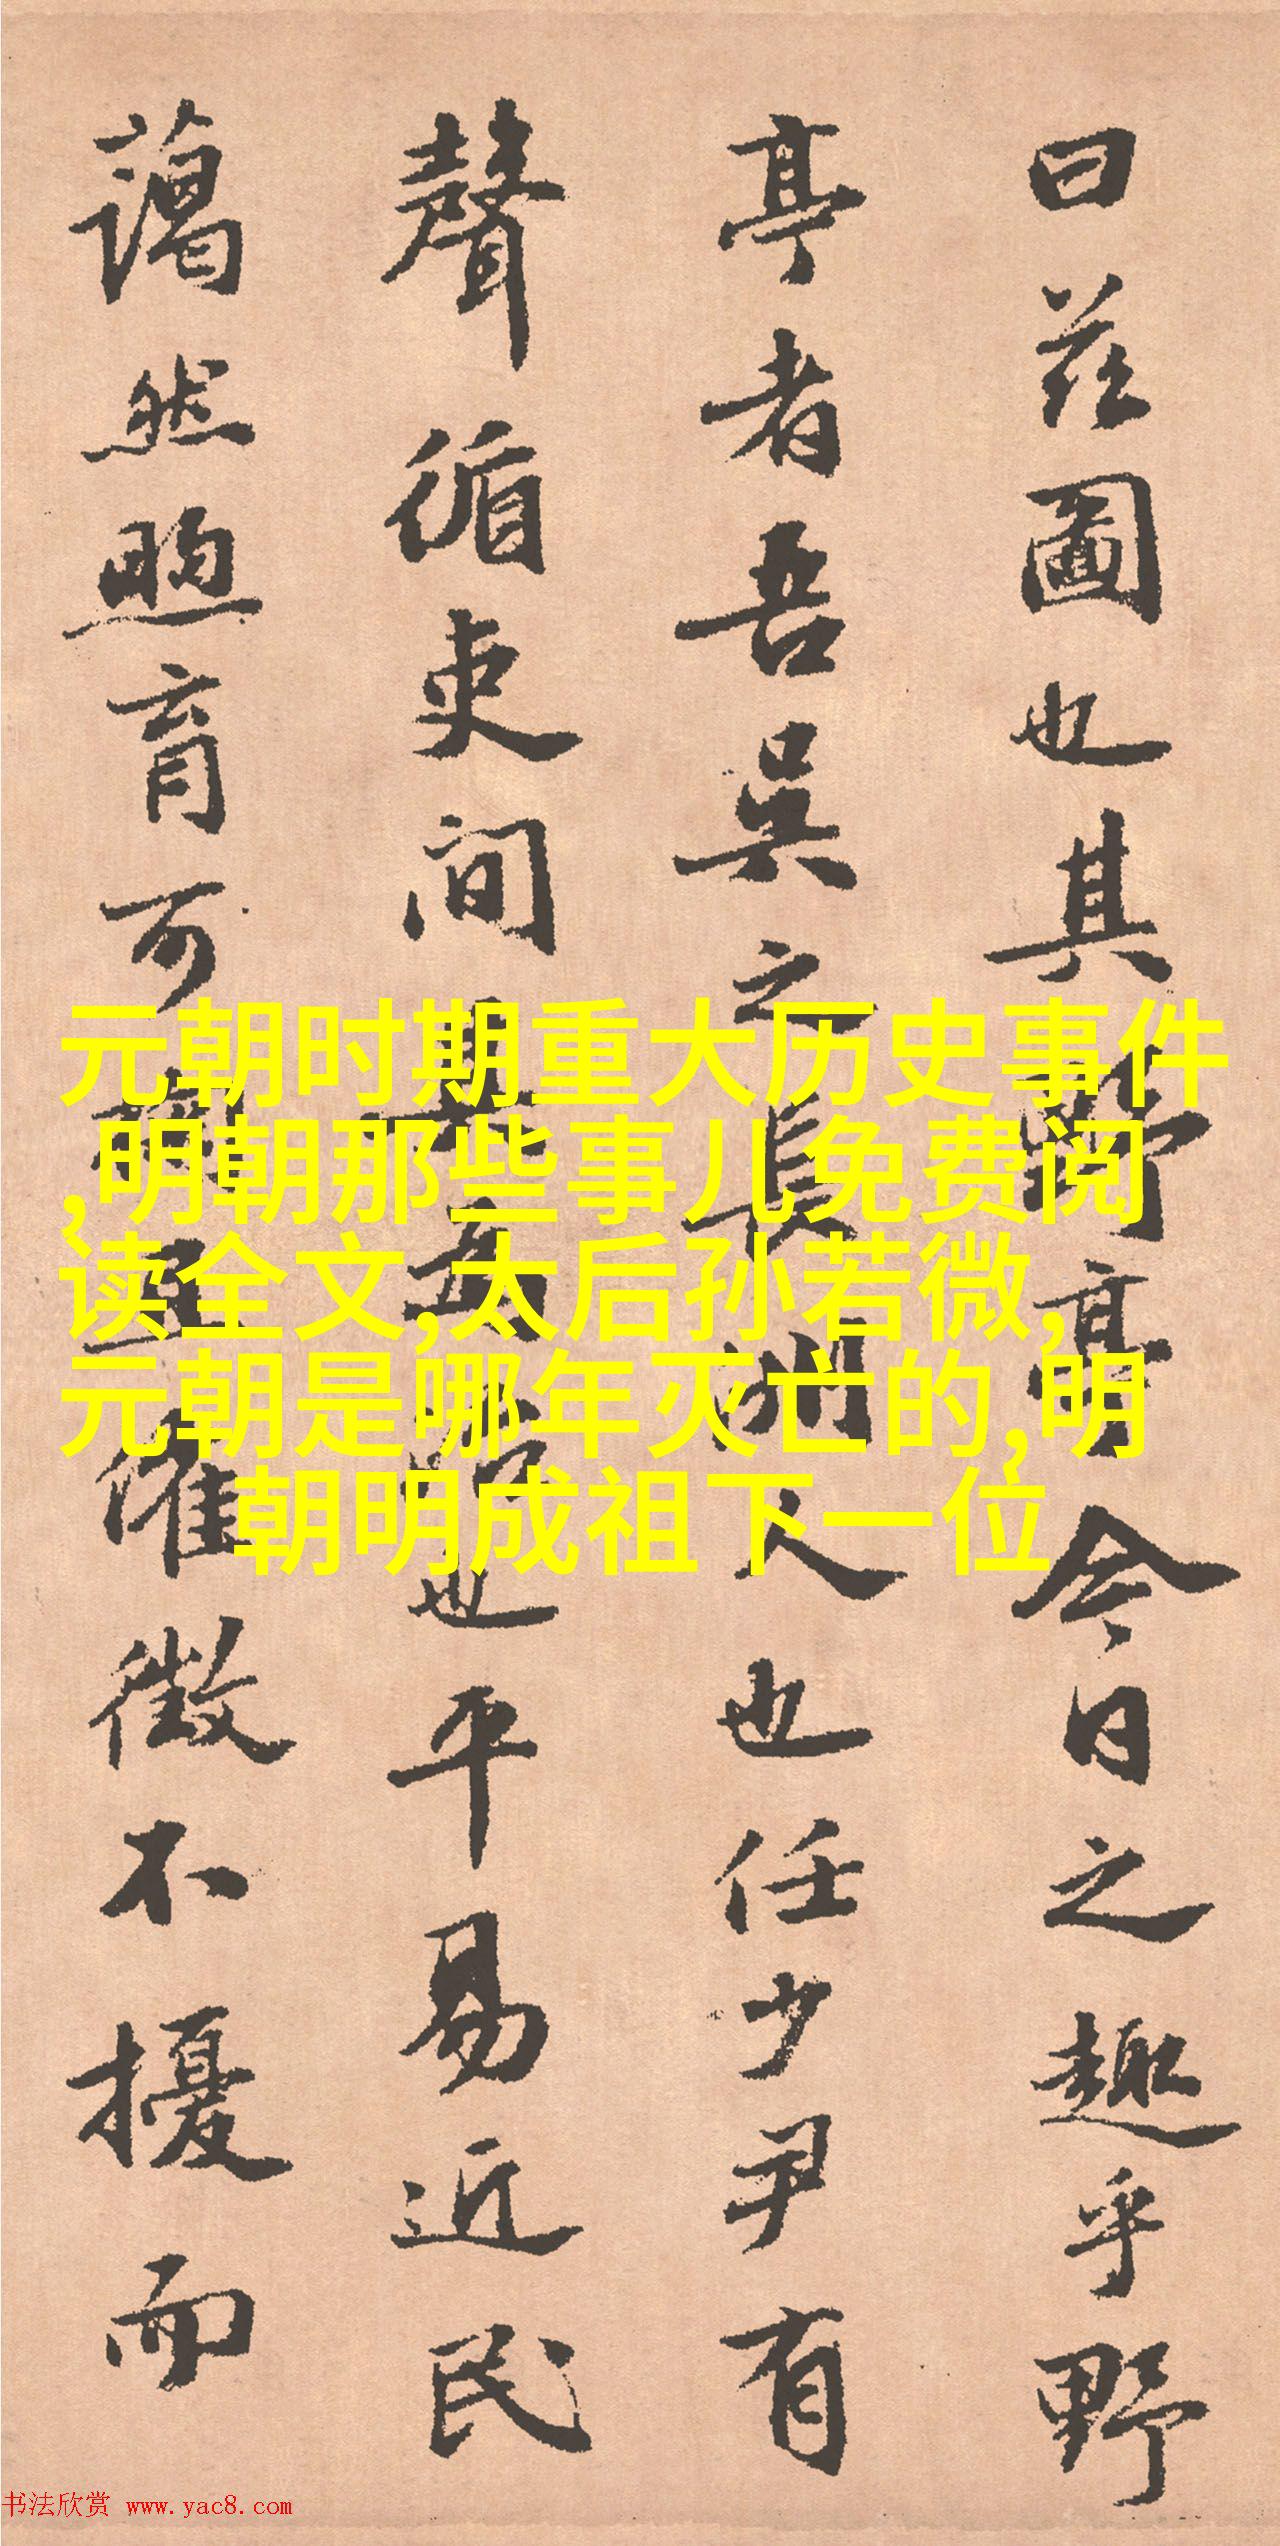 曰茲圖也其野亭今日之趣乎野
亭者吾吳之長洲人也任少尹有
聲循吏間其為治也平易近民
藹然煦育可
催徵不擾而
元朝时期重大历史事件
,明朝那些事儿免费阅
读全文,太后孙若微,
元朝是哪年灭亡的,明
朝明成祖下一位
书法欣赏 www.yac8.com